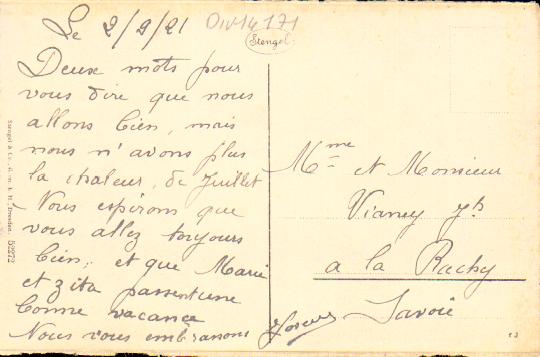 Le 2/9/21
Div14 171
Stengel
Deux mots pour
vous dire que nous
allons bien, mais
nous n'avons plus
la chaleur, de Juillet
Nous espérons que
vous allez toujours
bien; et que Marie
et zita passent une
bonne vacance
Nous vous embrassons
Mme et Monsieur
Vianey Jh
a la Rachy
Savoie
Stengel & Co., G. m. b. H., Dresden. 52272